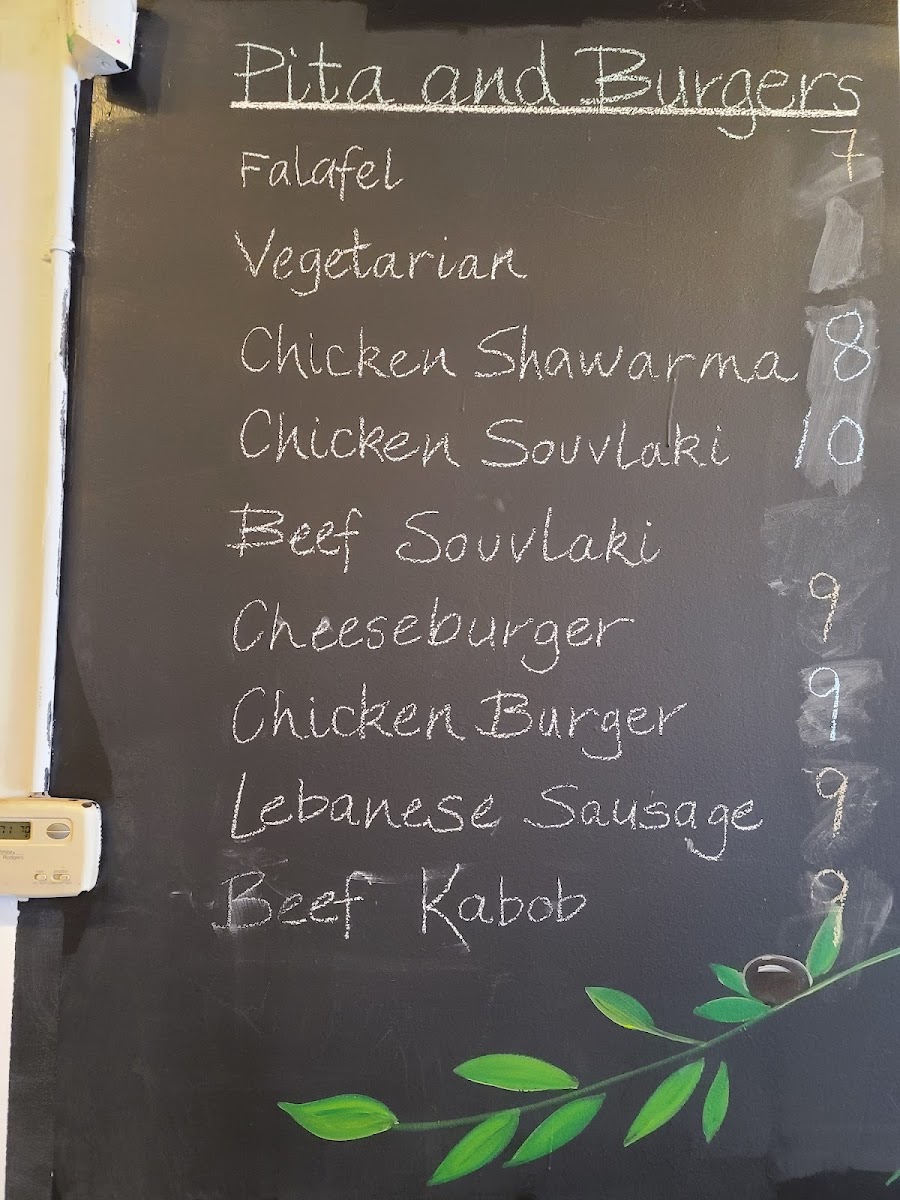 Pita and Burgers
Falafel 7
Vegetarian
Chicken Shawarma 8
Chicken Souvlaki 10
Beef Souvlaki
Cheeseburger 9
Chicken Burger 9
Lebanese Sausage 9
Beef Kabob 9